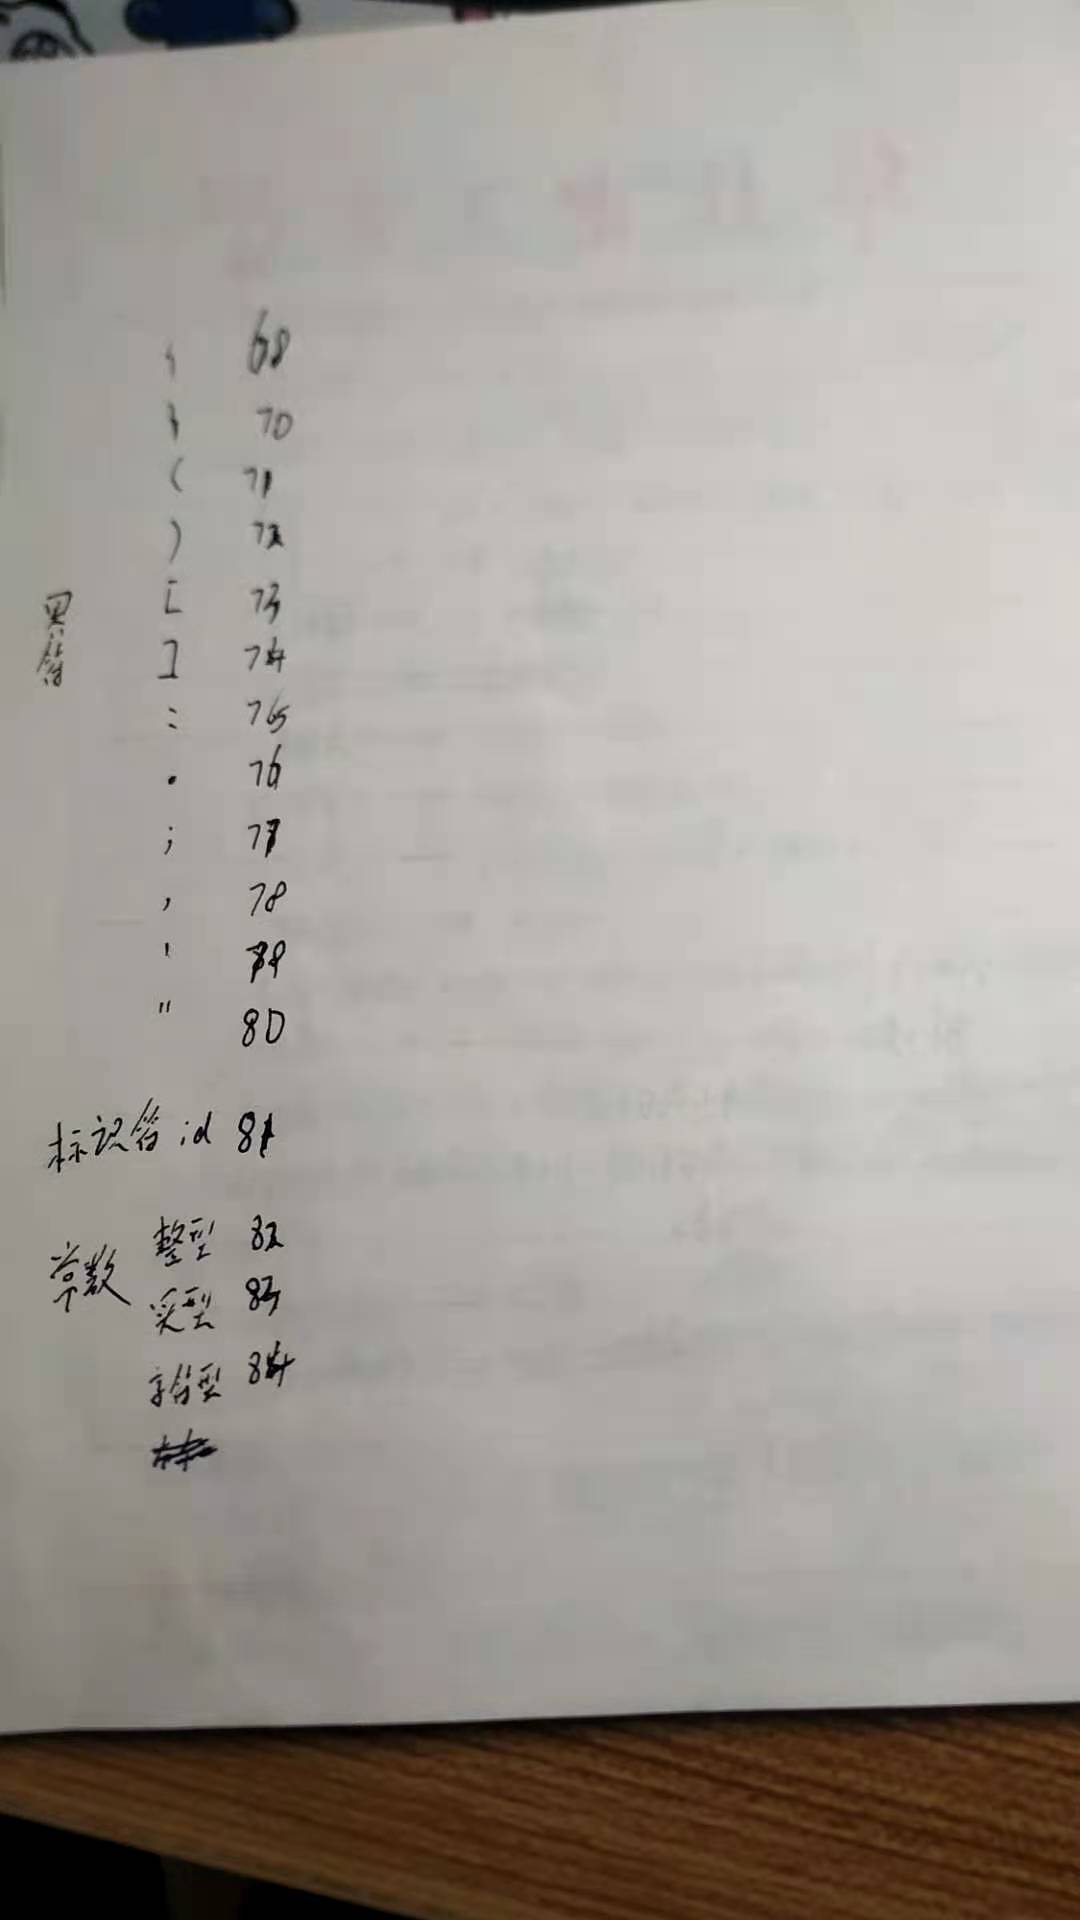 { 68
} 70
( 71
) 72
[ 73
界符
] 74
: 75
. 76
; 77
, 78
' 79
" 80
标识符 id 81
常数 整型 82
实型 83
字符型 84